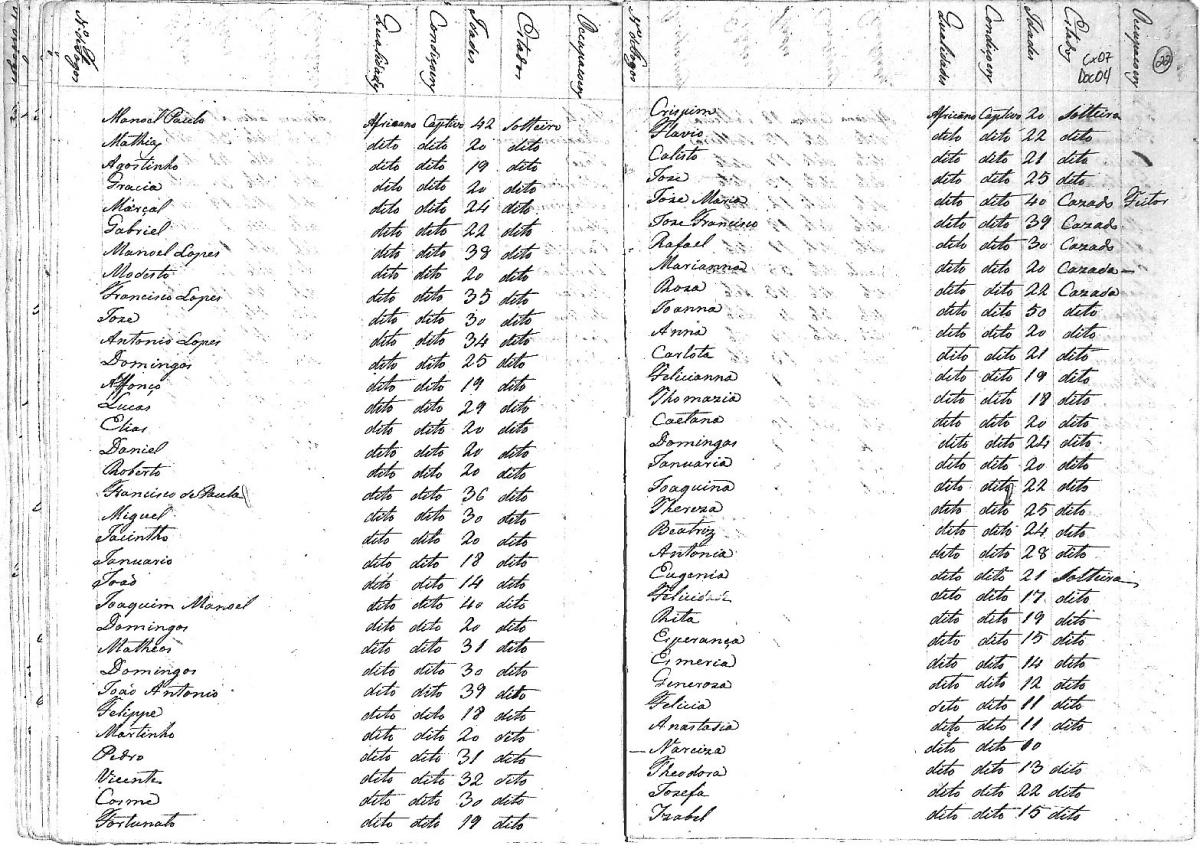 Nº de Fogos Qualidades Condiçoens Idades Estados Ocupaçoens
Manoel Paulo Africano Captivo 42 Solteiro
Mathias dito dito 20 dito
Agostinho dito dito 19 dito
Gracia dito dito 20 dito
Marçal dito dito 24 dito
Gabriel dito dito 22 dito
Manoel Lopes dito dito 38 dito
Modesto dito dito 20 dito
Francisco Lopes dito dito 35 dito
Joze dito dito 30 dito
Antonio Lopes dito dito 34 dito
Domingos dito dito 25 dito
Affonço dito dito 19 dito
Lucas dito dito 29 dito
Elias dito dito 20 dito
Daniel dito dito 20 dito
Roberto dito dito 20 dito
Francisco de Paula dito dito 36 dito
Miguel dito dito 30 dito
Jacintho dito dito 20 dito
Januario dito dito 18 dito
João dito dito 14 dito
Joaquim Manoel dito dito 40 dito
Domingos dito dito 20 dito
Matheos dito dito 31 dito
Domingos dito dito 30 dito
João Antonio dito dito 39 dito
Felippe dito dito 18 dito
Martinho dito dito 20 dito
Pedro dito dito 31 dito
Vicente dito dito 32 dito
Cosme dito dito 30 dito
Fortunato dito dito 19 dito
Nº de Fogos Qualidades Condiçoens Idades Estados Ocupaçoens
22
Cx07
Doc04
Crispim Africano Captivo 20 Solteiro
Flavio dito dito 22 dito
Calisto dito dito 21 dito
Joze dito dito 25 dito
Joze Maria dito dito 40 Cazado Feitor
Joze Francisco dito dito 39 Cazado
Rafael dito dito 30 Cazado
Marianna dito dito 20 Cazada
Roza dito dito 22 Cazada
Joanna dito dito 50 dito
Anna dito dito 20 dito
Carlota dito dito 21 dito
Felicianna dito dito 19 dito
Thomazia dito dito 18 dito
Caetana dito dito 20 dito
Domingas dito dito 24 dito
Januaria dito dito 20 dito
Joaquina dito dito 22 dito
Thereza dito dito 25 dito
Beatriz dito dito 24 dito
Antonia dito dito 28 dito
Eugenia dito dito 21 Solteira
Felicidade dito dito 17 dito
Rita dito dito 19 dito
Esperança dito dito 15 dito
Esmeria dito dito 14 dito
Generosa dito dito 12 dito
Felicia dito dito 11 dito
Anastasia dito dito 11 dito
Narciza dito dito 10
Theodora dito dito 13 dito
Josefa dito dito 22 dito
Izabel dito dito 15 dito